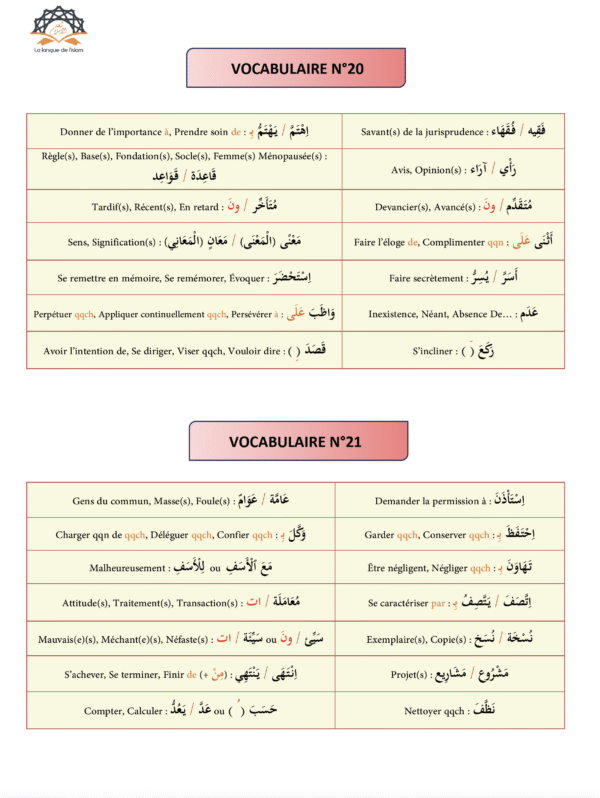 La langue de l'islam
VOCABULAIRE N°20
Donner de l'importance à, Prendre soin de : اِهْتَمَّ / يَهْتَمُّ بِـ
Savant(s) de la jurisprudence : فَقِيه / فُقَهَاء
Règle(s), Base(s), Fondation(s), Socle(s), Femme(s) Ménopausée(s) :
قَاعِدَة / قَوَاعِد
Avis, Opinion(s) : رَأْي / آرَاء
Tardif(s), Récent(s), En retard : مُتَأَخِّر / ونَ
Devancier(s), Avancé(s) : مُتَقَدِّم / ونَ
Sens, Signification(s) : مَعْنًى (الْمَعْنَى) / مَعَانٍ (الْمَعَانِي)
Faire l'éloge de, Complimenter qqn : أَثْنَى عَلَى
Se remettre en mémoire, Se remémorer, Évoquer : اِسْتَحْضَرَ
Faire secrètement : أَسَرَّ / يُسِرُّ
Perpétuer qqch, Appliquer continuellement qqch, Persévérer à : وَاظَبَ عَلَى
Inexistence, Néant, Absence De… : عَدَم
Avoir l'intention de, Se diriger, Viser qqch, Vouloir dire : قَصَدَ ( ِ )
S'incliner : رَكَعَ ( َ )
VOCABULAIRE N°21
Gens du commun, Masse(s), Foule(s) : عَامَّة / عَوَامّ
Demander la permission à : اِسْتَأْذَنَ
Charger qqn de qqch, Déléguer qqch, Confier qqch : وَكَّلَ بِـ
Garder qqch, Conserver qqch : اِحْتَفَظَ بِـ
Malheureusement : لِلْأَسَفِ ou مَعَ ٱلْأَسَفِ
Être négligent, Négliger qqch : تَهَاوَنَ بِـ
Attitude(s), Traitement(s), Transaction(s) : مُعَامَلَة / ات
Se caractériser par : اِتَّصَفَ / يَتَّصِفُ بِـ
Mauvais(e)(s), Méchant(e)(s), Néfaste(s) : سَيِّئَة / ات ou سَيِّئ / ونَ
Exemplaire(s), Copie(s) : نُسْخَة / نُسَخ
S'achever, Se terminer, Finir de (+ مِنْ) : اِنْتَهَى / يَنْتَهِي
Projet(s) : مَشْرُوع / مَشَارِيع
Compter, Calculer : عَدَّ / يَعُدُّ ou حَسَبَ ( ُ )
Nettoyer qqch : نَظَّفَ